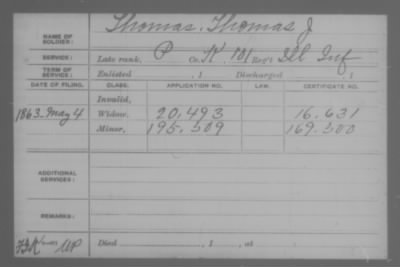 NAME OF SOLDIER: Thomas, Thomas J
SERVICE: Late rank, P Co. K 101 Reg't Ill Inf
TERM OF SERVICE: Enlisted , 1 Discharged , 1
DATE OF FILING. CLASS. APPLICATION NO. LAW. CERTIFICATE NO.
Invalid,
1863-May 4 Widow, 20,493 16,631
Minor, 195,309 169,500
ADDITIONAL SERVICES:
REMARKS:
Died , 1 , at